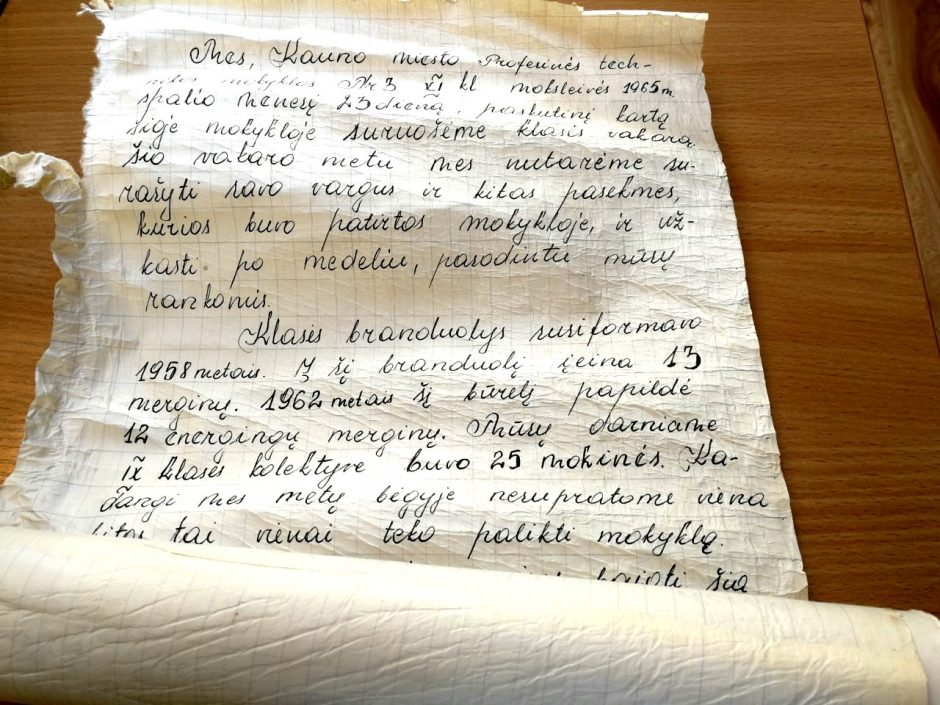 Mes, Kauno miesto Profesinės tech-
mokyklos Nr 3 XI kl moksleivės 1965 m.
spalio mėnesį 23 dieną, paskutinį kartą
šioje mokykloje suruošėme klasės vakarą.
Šio vakaro metu mes nutarėme su-
rašyti savo vargus ir kitas pasekmes,
kurios buvo patirtos mokykloje, ir už-
kasti po medeliu, pasodintu mūsų
rankomis.
Klasės branduolys susiformavo
1958 metais. Į šį branduolį įeina 13
merginų. 1962 metais šį būrelį papildė
12 energingų merginų. Mūsų darniame
IX klasės kolektyve buvo 25 mokinės. Ka-
dangi mes metų bėgyje nesupratome viena
kitos tai vienai teko palikti mokyklą.
baigti šią